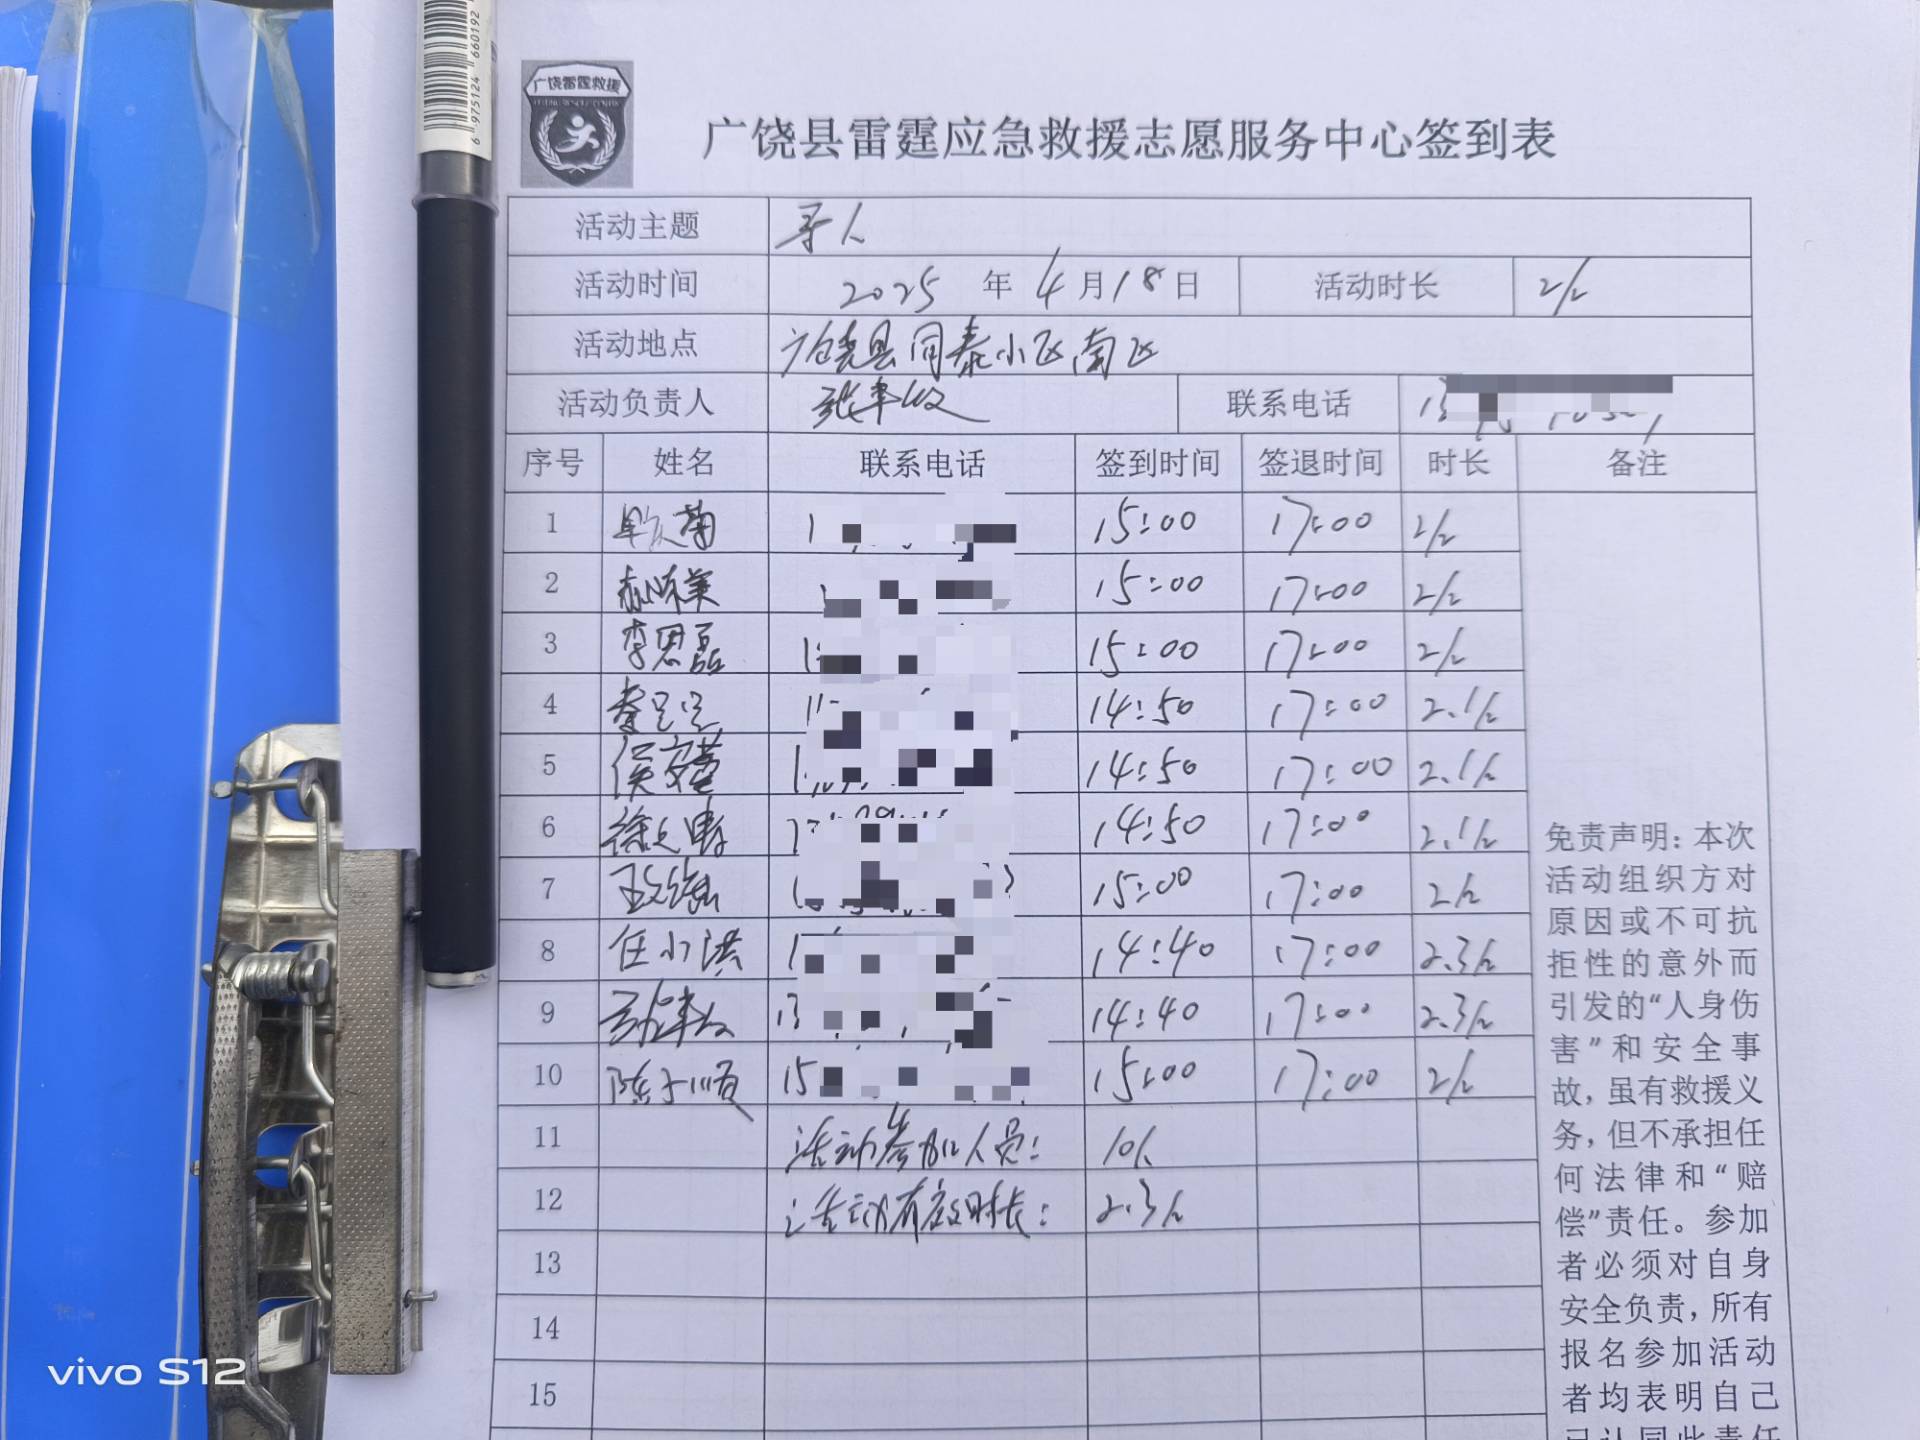 6 975124 660192
广饶雷霆救援
广饶县雷霆应急救援志愿服务中心签到表
活动主题 寻人
活动时间 2025 年 4 月 18 日 活动时长 2h
活动地点 广饶县同泰小区南区
活动负责人 联系电话
序号 姓名 联系电话 签到时间 签退时间 时长 备注
1 15:00 17:00 2h
2 15:00 17:00 2h
3 李思磊 15:00 17:00 2h
4 14:50 17:00 2.1h
5 14:50 17:00 2.1h
6 14:50 17:00 2.1h
7 15:00 17:00 2h
8 任小洪 14:40 17:00 2.3h
9 13 14:40 17:00 2.3h
10 陈子顺 15 15:00 17:00 2h
11 活动参加人员: 10人
12 活动有效时长: 2.3h
13
14
15
免责声明:本次
活动组织方对
原因或不可抗
拒性的意外而
引发的“人身伤
害”和安全事
故,虽有救援义
务,但不承担任
何法律和“赔
偿”责任。参加
者必须对自身
安全负责,所有
报名参加活动
者均表明自己
已认同此责任
vivo S12